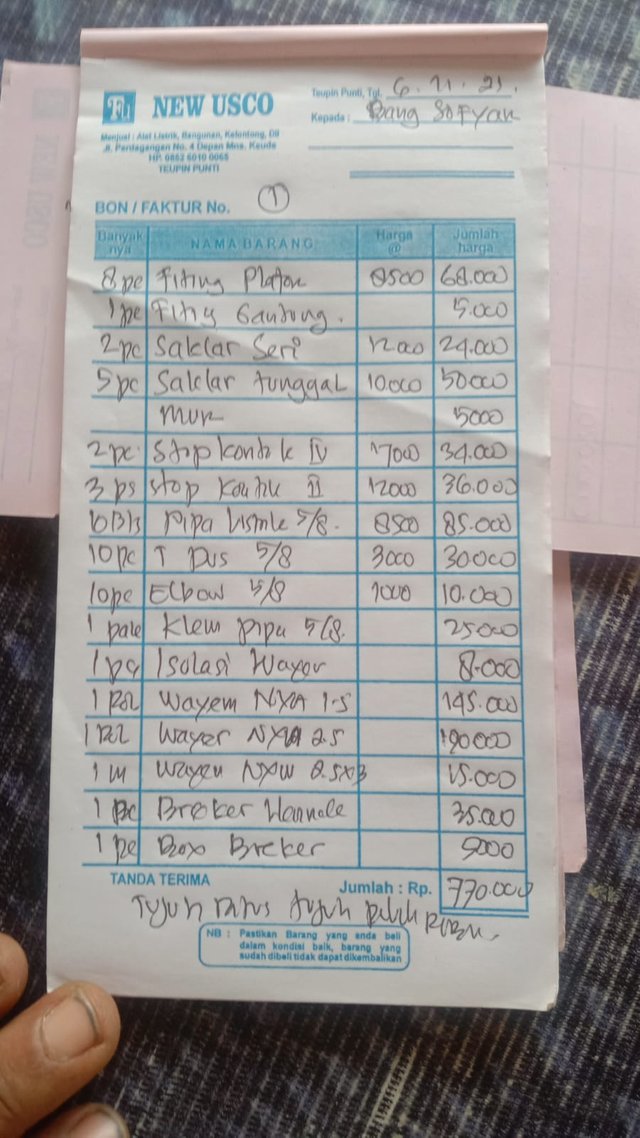 FU NEW USCO
Menjual : Alat Listrik, Bangunan, Kelontong, Dll
Jl. Perdagangan No. 4 Depan Mns. Keude
HP. 0852 6010 0065
TEUPIN PUNTI
Teupin Punti, Tgl. 6.11.21.
Kepada : Bang Sofyan
BON / FAKTUR No. 1
Banyak nya NAMA BARANG Harga @ Jumlah harga
8 pc Fiting Plafon 8500 68.000
1 pc Fiting Gantung. 5.000
2 pc Saklar Seri 12000 24.000
5 pc Saklar tunggal 10000 50000
Mur 5000
2 pc. Stop kontak IV 17000 34.000
3 ps Stop Kontak II 12000 36.000
10 Pipa Listrik 5/8. 8500 85.000
10 pc T Dus 5/8 3000 30000
10 pc Elbow 5/8 1000 10.000
1 pak Klem pipa 5/8. 25000
1 pc Isolasi Wayer 8.000
1 Rol Wayem NYA 1.5 145.000
1 Rol Wayer NYA 2.5 190000
1 m Wayer NYM 2.5x3 15.000
1 pc Breker Hannale 35.000
1 pc Box Breker 9000
TANDA TERIMA Jumlah : Rp. 770.000
Tujuh ratus tujuh puluh Ribu.
NB : Pastikan Barang yang anda beli
dalam kondisi baik, barang yang
sudah dibeli tidak dapat dikembalikan